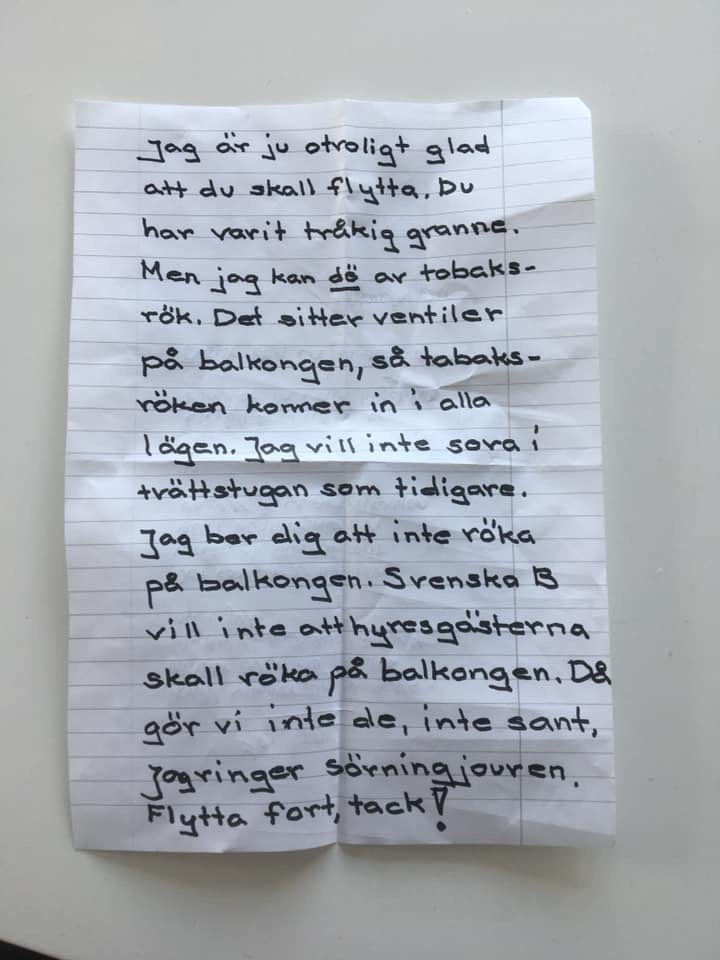 Jag är ju otroligt glad
att du skall flytta. Du
har varit tråkig granne.
Men jag kan dö av tobaks-
rök. Det sitter ventiler
på balkongen, så tabaks-
röken kommer in i alla
lägen. Jag vill inte sova i
tvättstugan som tidigare.
Jag ber dig att inte röka
på balkongen. Svenska B
vill inte att hyresgästerna
skall röka på balkongen. Då
gör vi inte de, inte sant,
Jag ringer sörningjouren.
Flytta fort, tack!